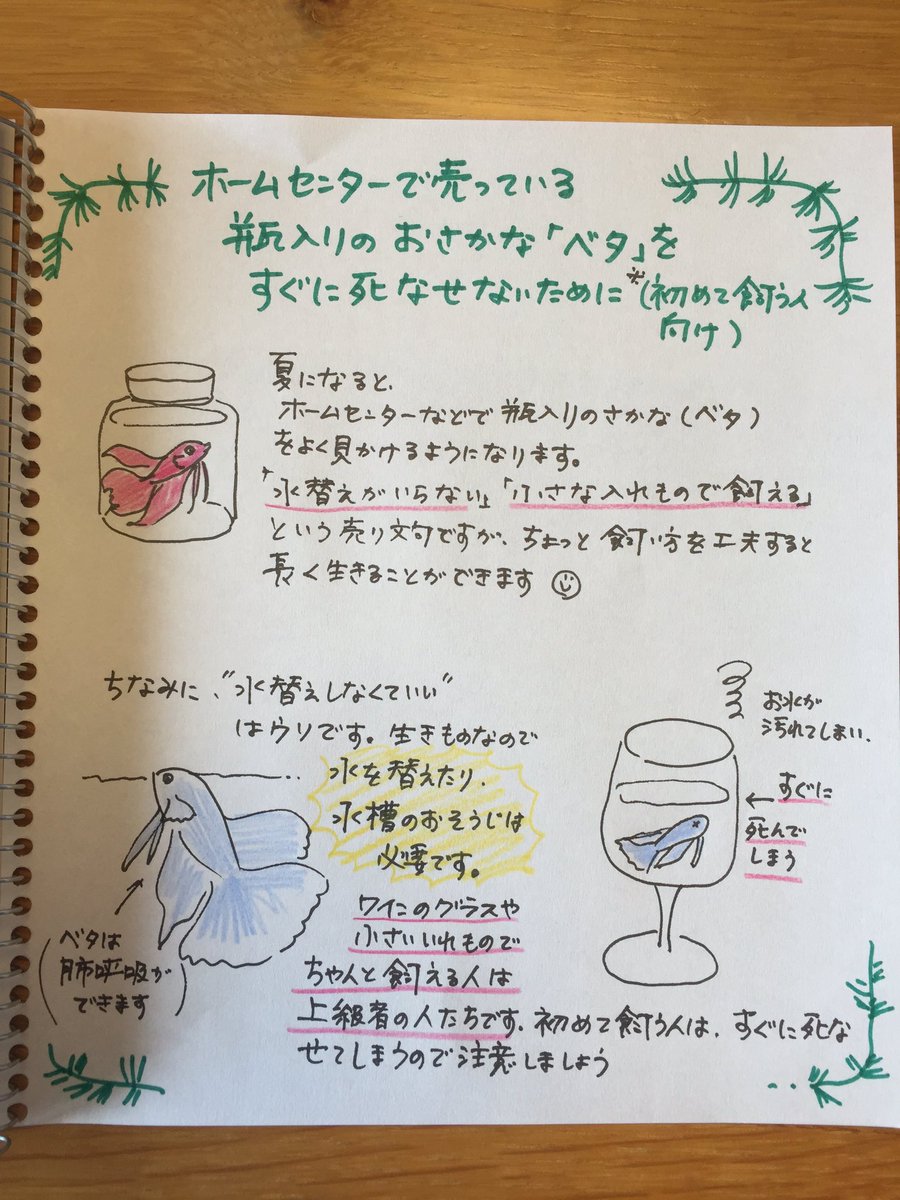 ホームセンターで売っている
瓶入りの おさかな「ベタ」を
すぐに死なせないために※(初めて飼う人
向け)
夏になると、
ホームセンターなどで瓶入りのさかな(ベタ)
をよく見かけるようになります。
「水替えがいらない」「小さな入れもので飼える」
という売り文句ですが、ちょっと飼い方を工夫すると
長く生きることができます
ちなみに、"水替えしなくていい"
はウソです。生きものなので
水を替えたり、
水槽のおそうじは
必要です。
お水が
汚れてしまい、
←すぐに
死んで
しまう
(ベタは
肺呼吸が
できます)
ワインのグラスや
小さいいれもので
ちゃんと飼える人は
上級者の人たちです。初めて飼う人は、すぐに死な
せてしまうので注意しましょう